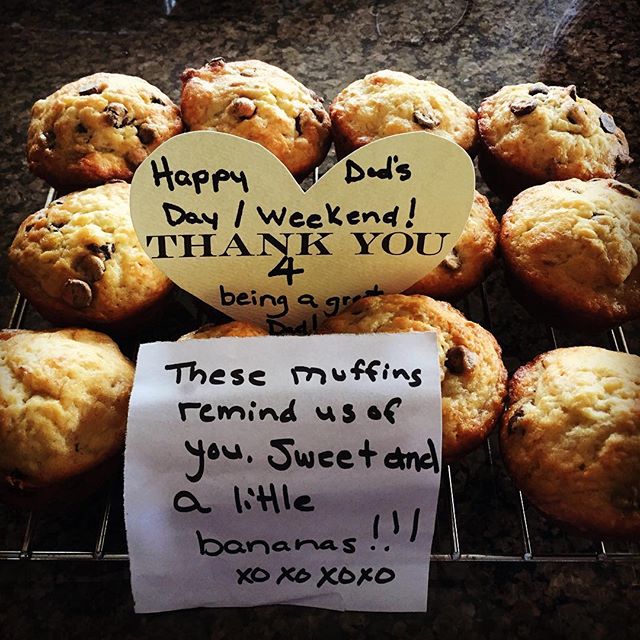 Happy Dad's
Day / Weekend!
THANK YOU
4
being a great
Dad!
These muffins
remind us of
you. Sweet and
a little
bananas!!!
xo xo xo xo